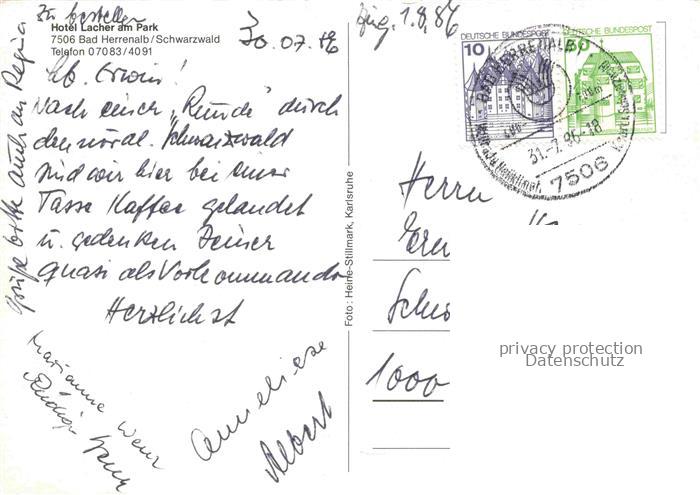 zu bestellen
Hotel Lacher am Park
7506 Bad Herrenalb/Schwarzwald
Telefon 07083/4091
30.07.86
Lb. Erwin!
Nach einer "Runde" durch
den nördl. Schwarzwald
sind wir hier bei einer
Tasse Kaffee gelandet
u. gedenken Deiner
quasi als Vorkommando
Herzlichst
Anneliese
Albert
Marianne
Grüße bitte auch an Regina
Foto: Heine-Stillmark, Karlsruhe
1.8.86
DEUTSCHE BUNDESPOST
10
DEUTSCHE BUNDESPOST
50
BAD HERRENALB
31.-7.86-18
7506
Herrn
1000
privacy protection
Datenschutz